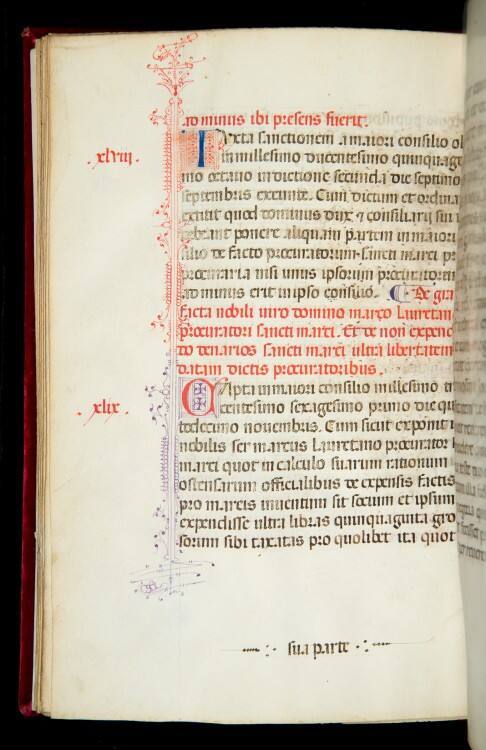 ad minus ibi presens fuerit.
.xlviii.
Iuxta sanctionem a maiori consilio ol
in millesimo ducentesimo quinquage
mo octauo indictione secunda die septimo
septembris exeunte. Cum dictum et ordina
extitit quod dominus dux & consiliarii sui
debeant ponere aliquam partem in maiori
silio de facto procuratorum sancti marci pr
procuraria nisi unus ipsorum procuratorum
ad minus erit in ipso consilio. De gra
facta nobili uiro domino marco Lauretan
procuratori sancti marci. Et de non expend
do denarios sancti marci ultra libertatem
datam dictis procuratoribus.
.xlix.
Capta in maiori consilio millesimo du
centesimo sexagesimo primo die qu
todecimo nouembris. Cum sicut exponit
nobilis ser marcus Lauretano procurator
marci quot in calculo suarum rationum
ostensarum officialibus de expensis factis
pro marcis inuentum sit socium et ipsum
expendisse ultra libras quinquaginta gro
sorum sibi taxatas pro quolibet ita quot
sua parte